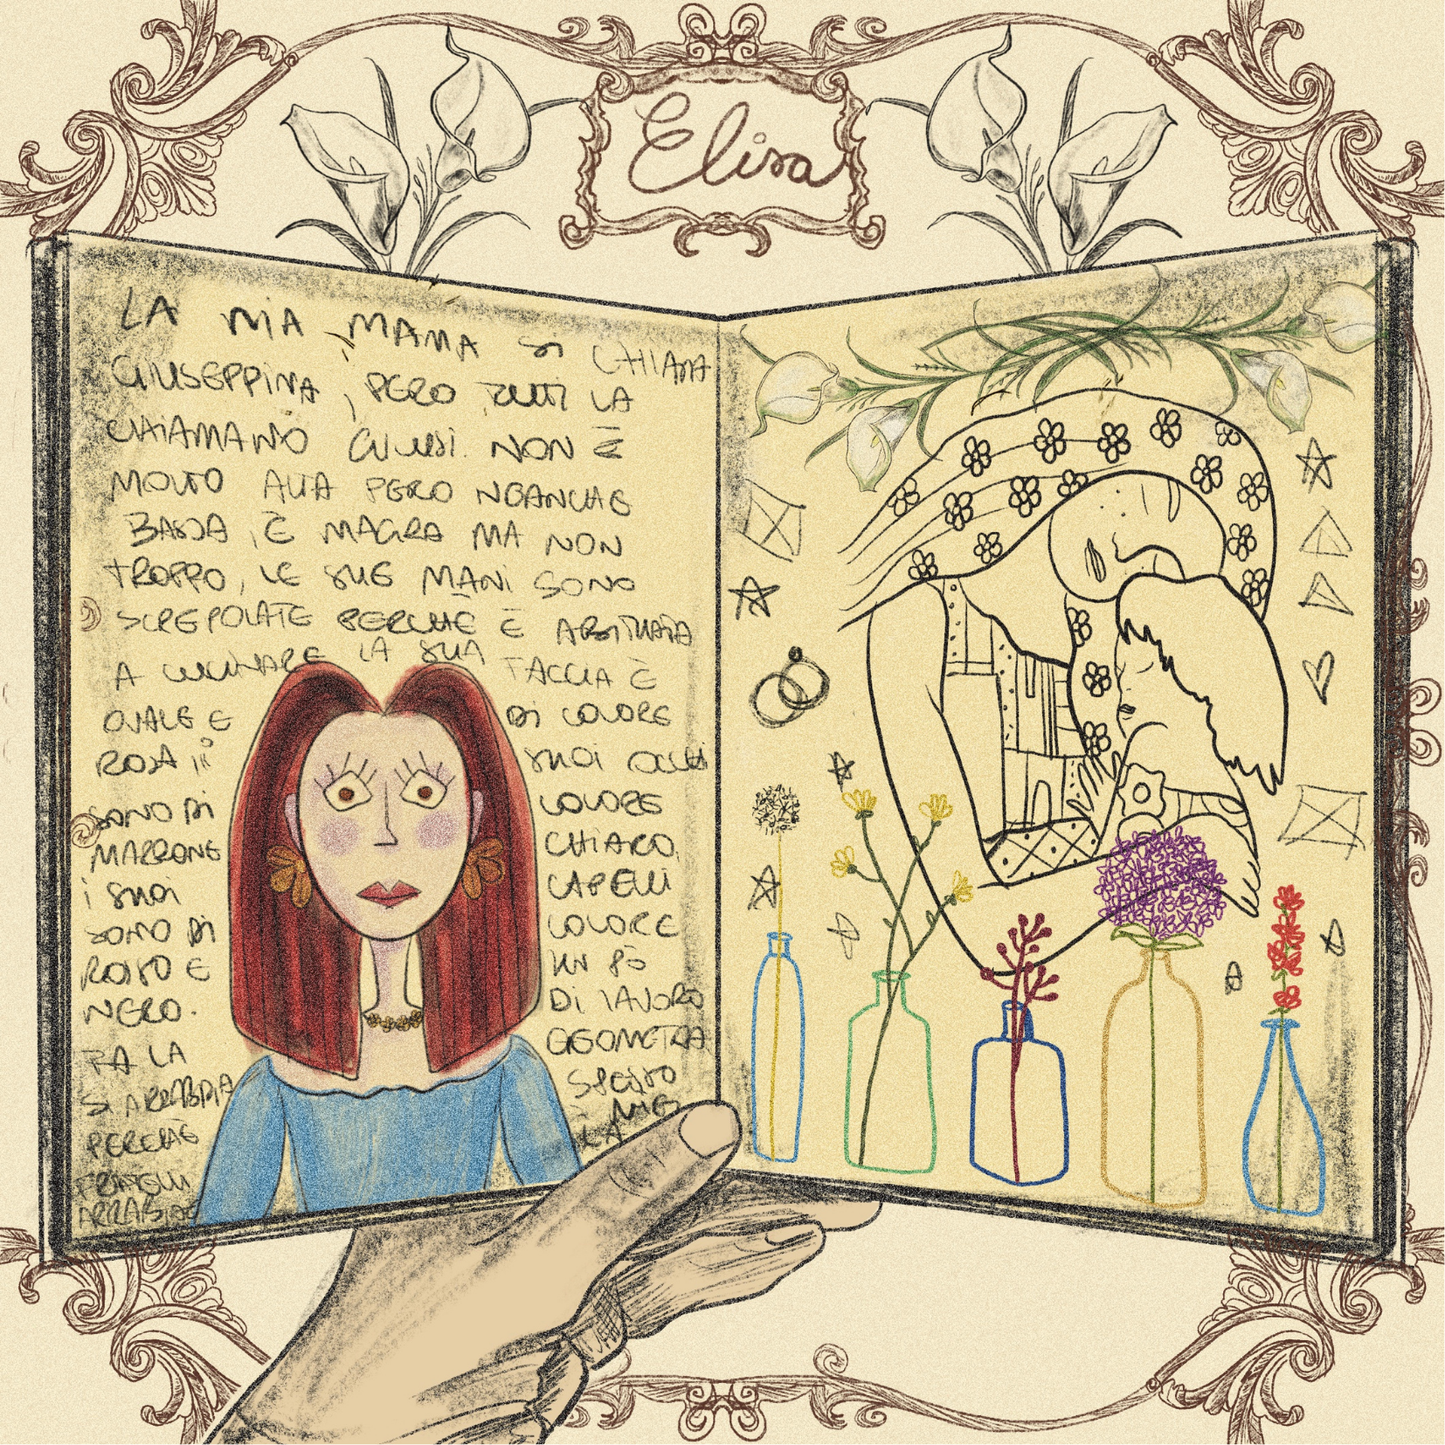 Elisa
LA MIA MAMA SI CHIAMA
GIUSEPPINA, PERO TUTTI LA
CHIAMANO GIUSI. NON È
MOLTO ALTA PERO NEANCHE
BASSA, È MAGRA MA NON
TROPPO, LE SUE MANI SONO
SCREPOLATE PERCHE È ABITUATA
A CUCINARE LA SUA FACCIA È
OVALE E DI COLORE
ROSA i SUOI OCCHI
SONO DI COLORE
MARRONE CHIARO,
i SUOI CAPELLI
SONO DI COLORE
ROSSO E UN PÒ
NERO. DI LAVORO
FA LA GEOMETRA
SI ARRABBIA SPESSO
PERCHÈ
ARRABIARE